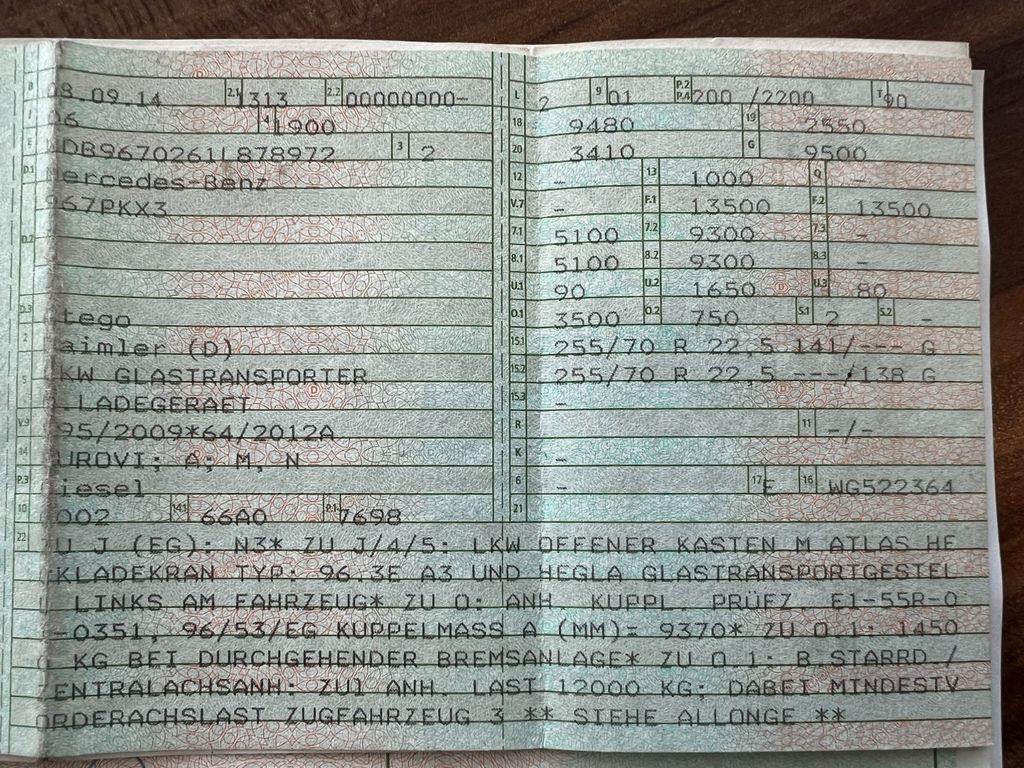 B 08.09.14 2.1 1313 2.2 00000000-
J 06 4 L900
E WDB9670261L878972 3 2
D.1 Mercedes-Benz
967PKX3
D.2
D.3 tego
2 aimler (D)
5 KW GLASTRANSPORTER
.LADEGERAET
V.9 95/2009*64/2012A
14 UROVI; A; M, N
P.3 iesel
10 0002 14.1 66A0 P.1 7698
L 2 9 01 P.2 P.4 200 /2200 T 90
18 9480 19 2550
20 3410 G 9500
12 - 13 1000 Q -
V.7 - F.1 13500 F.2 13500
7.1 5100 7.2 9300 7.3 -
8.1 5100 8.2 9300 8.3 -
U.1 90 U.2 1650 U.3 80
O.1 3500 O.2 750 S.1 2 S.2 -
15.1 255/70 R 22,5 141/--- G
15.2 255/70 R 22,5 ---/138 G
15.3 -
R 11 -/-
K -
6 - 17 E 16 WG522364
21
22 ZU J (EG): N3* ZU J/4/5: LKW OFFENER KASTEN M ATLAS HE
CKLADEKRAN TYP: 96.3E A3 UND HEGLA GLASTRANSPORTGESTEL
L LINKS AM FAHRZEUG* ZU O: ANH. KUPPL. PRÜFZ. E1-55R-0
-0351, 96/53/EG KUPPELMASS A (MM)= 9370* ZU O.1: 1450
0 KG BEI DURCHGEHENDER BREMSANLAGE* ZU O 1: B.STARRD./
ZENTRALACHSANH: ZUl ANH. LAST 12000 KG; DABEI MINDESTV
ORDERACHSLAST ZUGFAHRZEUG 3 ** SIEHE ALLONGE **